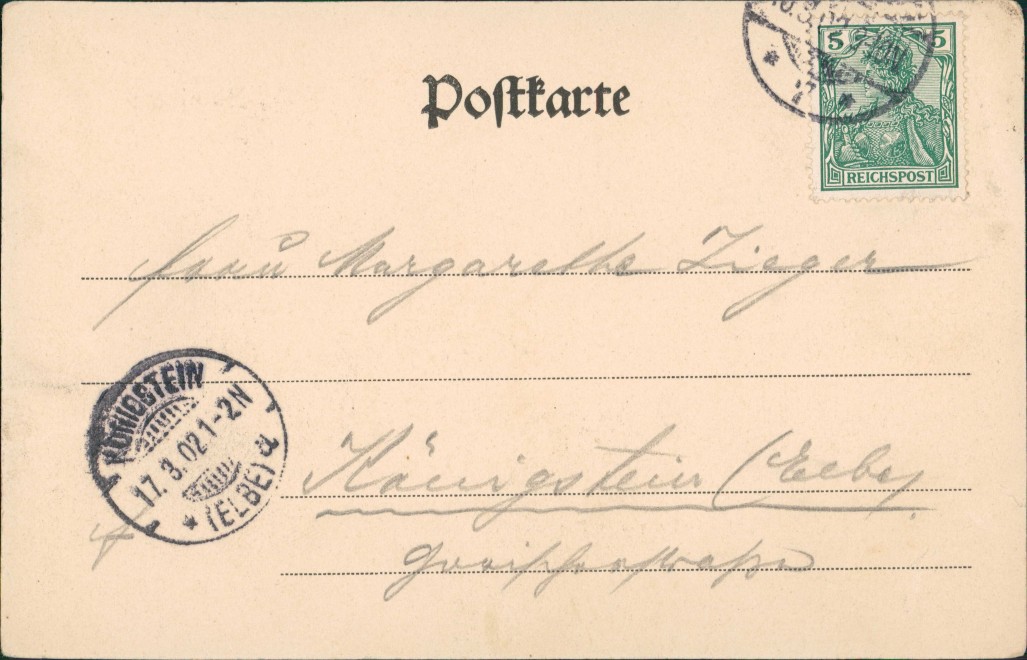 5 5
REICHSPOST
Postkarte
Frau Margarethe Zieger
KÖNIGSTEIN
17.3.02.1-2N
* (ELBE) d
Königstein (Elbe)